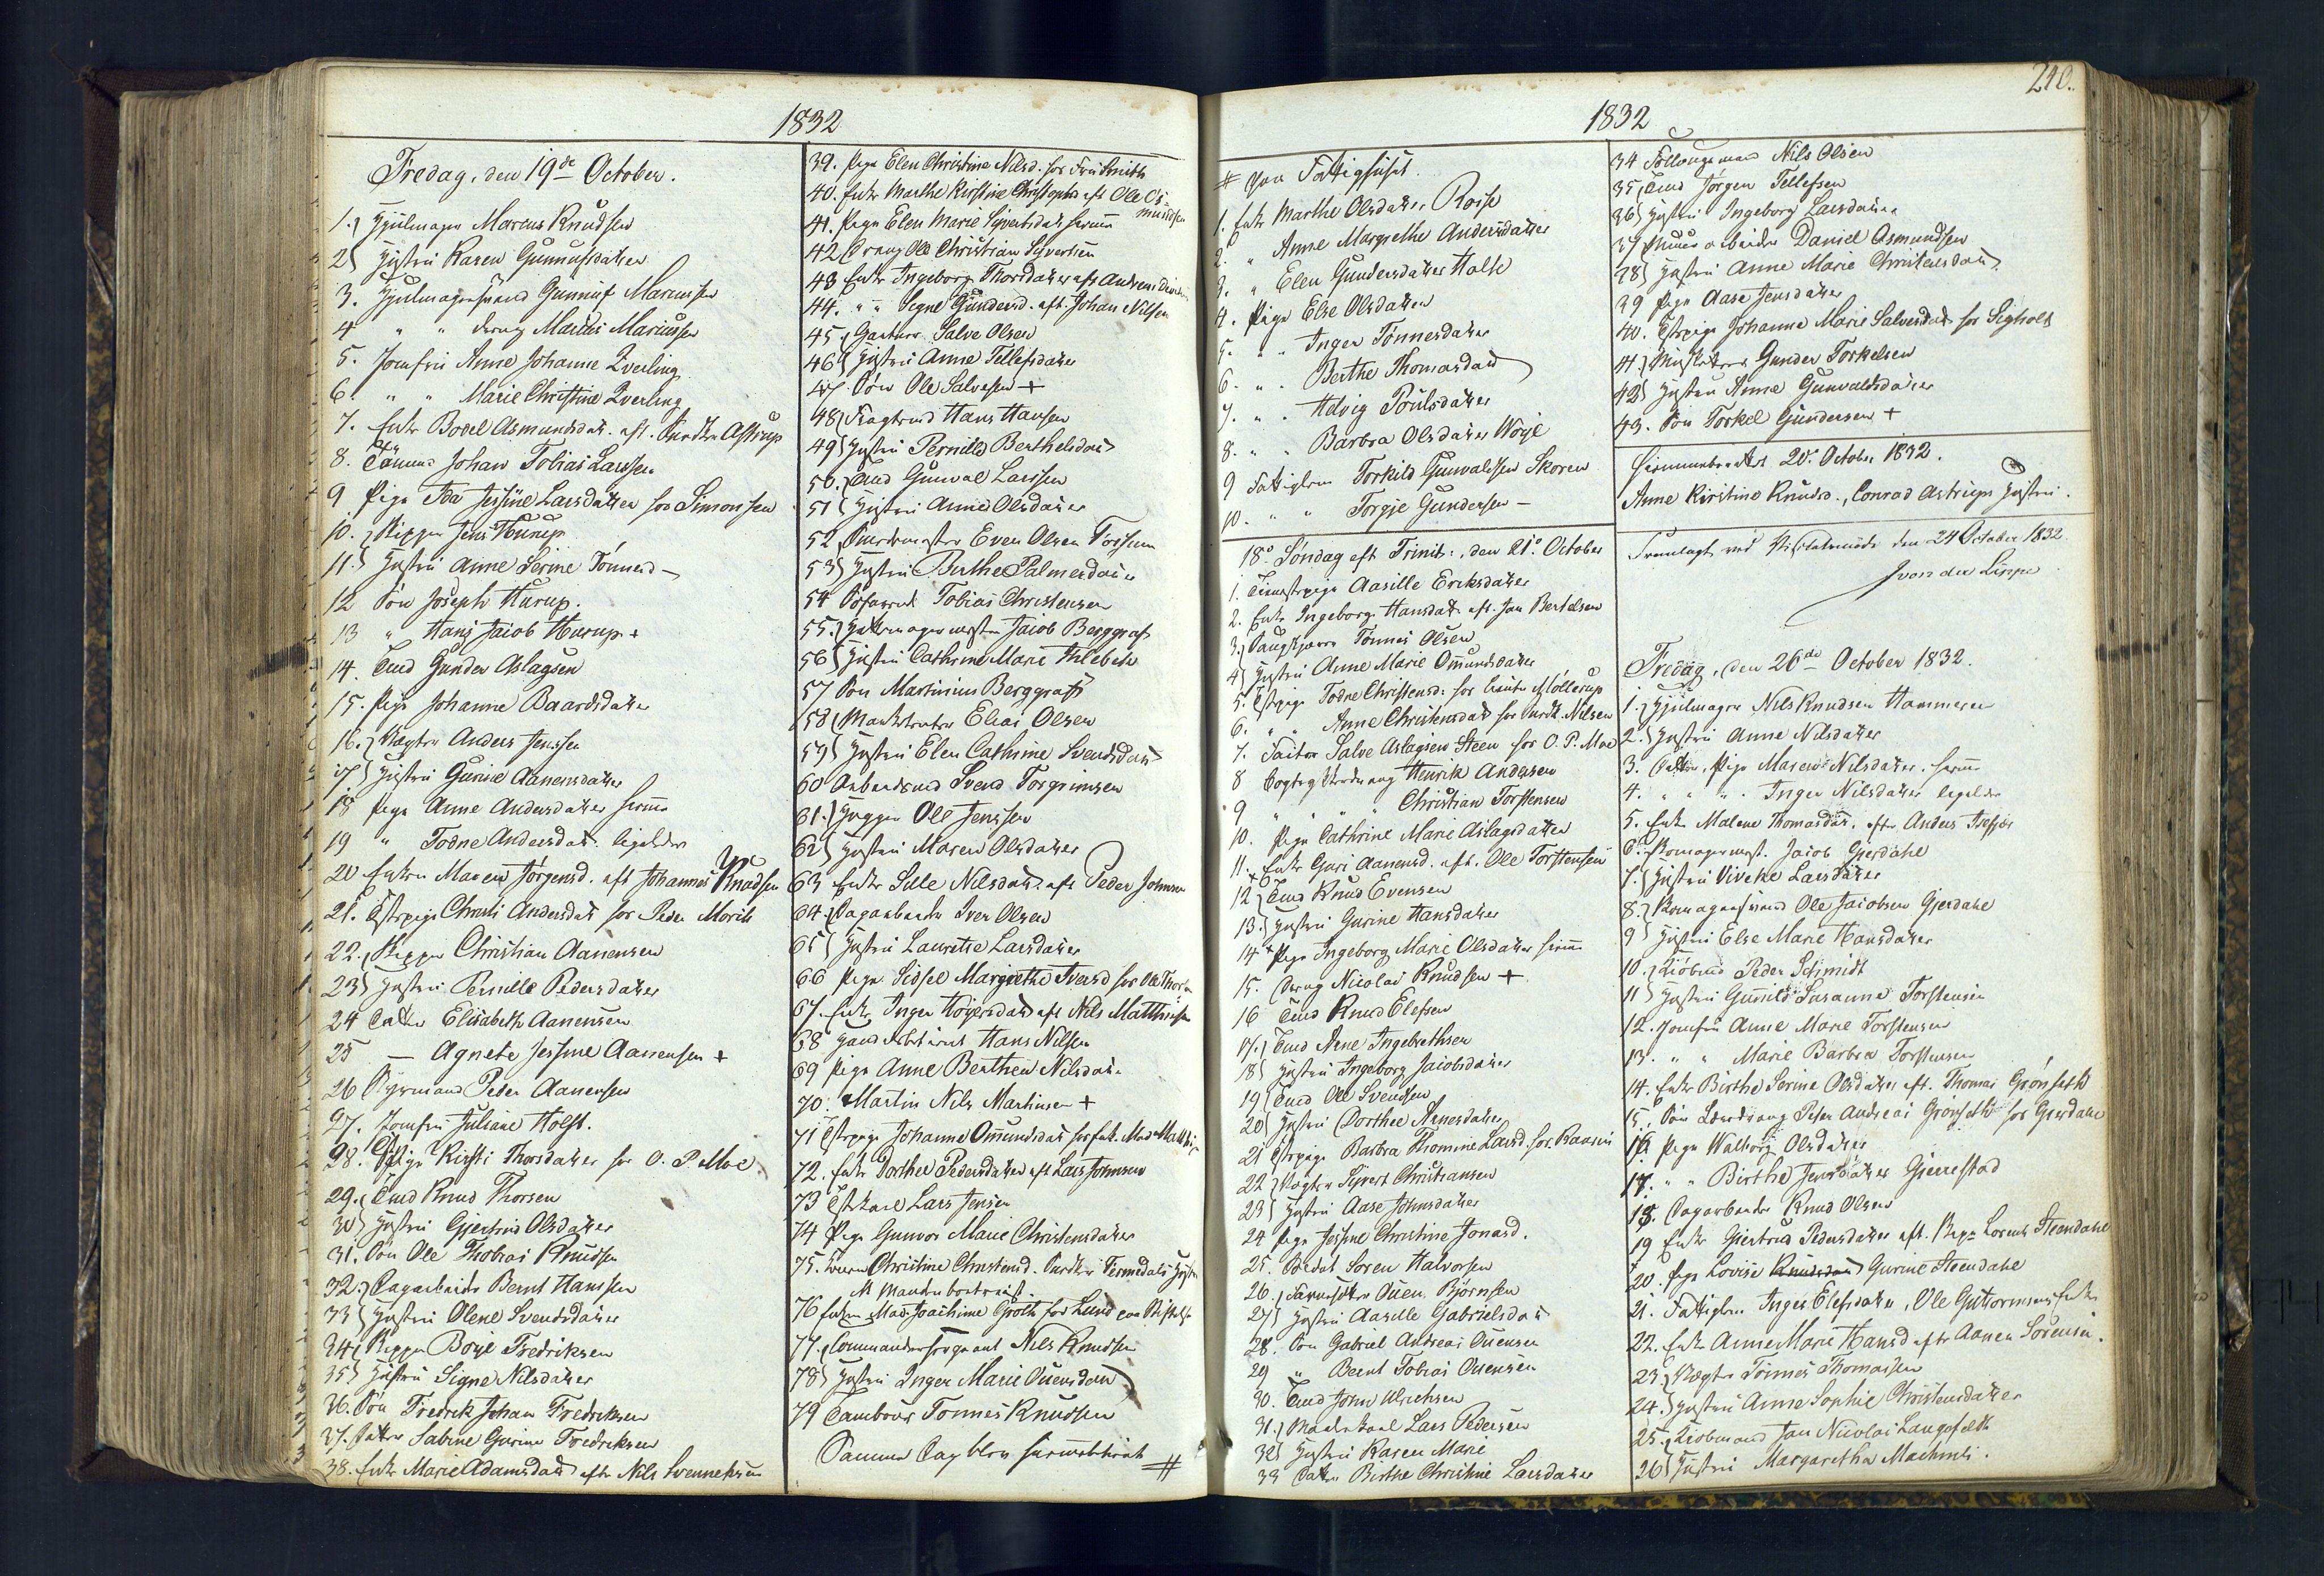 1832
Fredag, den 19de October.
1. Hjulmager Marcus Knudsen
2 Hustru Karen Gunnufsdatter
3. Hjulmagersvend Gunnuf Marcussen
4 " " dreng Marcus Marcussen
5. Jomfru Anne Johanne Qverling
6. " " Marie Christine Qverling
7. Enke Bodel Asmundsdat. eft. Astrup
8. Tömmd Johan Tobias Larssen
9 Pige Ida Jessine Larsdatter hos Simonsen
10. Skipper Jens Hurup
11. Hustru Anne Serine Tönnesd
12 Sön Joseph Hurup.
13 " Hans Jacob Hurup +
14. Tmd Gunder Aslagsen
15. Pige Johanne Baardsdatter
16. Vægter Anders Jenssen
17 Hustru Gurine Aanensdatter
18 Pige Anne Andersdatter
19 " Todne Andersdat. ligeledes
20 Enken Maren Jörgensd. eft Johannes Knudsen
21. Tjstpige Christi Andersdat hos Peder Morits
22. Skipper Christian Aanensen
23 Hustru Pernille Pedersdatter
24 Datter Elisabeth Aanensen
25 — Agnete Jessine Aanensen +
26 Styrmand Peder Aanensen
27. Jomfru Juliane Holst.
28. Tjstpige Kirsti Thorsdatter hos O. P. Moe
29. Tmd Knud Thorsen
30 Hustru Gjertrud Olsdatter
31. Sön Ole Thobias Knudsen
32. Dagarbeider Bernt Hanssen
33 Hustru Olene Svendsdatter
34 Skipper Börje Fredriksen
35 Hustru Signe Nilsdatter
36. Sön Fredrik Johan Fredriksen
37. Datter Sabine Gurine Fredriksen
38. Enke Marie Adamsdat efter Nils Svenneksen
39. Pige Elen Christine Nilsd. hos Fru Smith
40. Enke Marthe Kirstine Christophsd eft Ole Os-
mundsen
41. Pige Elen Marie Syvertsdat
42 Dreng Ole Christian Syvertsen
43 Enke Ingeborg Thorsdatter eft Andreas
44. " " Segne Gundersd. eft. Johan Nilsen
45. Gartner Salve Olsen
46 Hustru Anne Tellefsdatter
47. Sön Ole Salvesen +
48 Fragtmd Hans Hansen
49 Hustru Pernille Berthelsdat
50. Tmd Gunval Larssen
51 Hustru Anne Olsdatter
52 Even Olsen Fossum
53 Hustru Berthe Palmesdatter
54 Tobias Christensen
55. Hattemagermester Jacob Berggraf
56 Hustru Cathrine Marie
57 Sön Martinius Berggraf
58 Elias Olsen
59 Hustru Elen Cathrine Svendsdat
60 Arbeidsmd Svend Torgrimsen
61. Ole Jenssen
62 Hustru Maren Olsdatter
63 Enke Sille Nilsdat. eft Peder Johnsen
64. Dagarbeider Iver Olsen
65 Hustru Lauretze Larsdatter
66 Pige Sidsel Margrethe Iversd hos Ole
67. Enke Inger Höyersdat eft Nils Matthisen
68 Hans Nilsen
69 Pige Anne Berthea Nilsdat.
70. Martin Nils Martinsen +
71 Tjstpige Johanne Omundsdat hos
72. Enke Dorthea Pedersdatter eft Lars Johnsen
73 Tjstkarl Lars Jensen
74 Pige Gunvor Marie Christensdatter
75. Christine Christensd.
Manden bortreist.
76 Enken Mad. Joachime Groth
77. Commandersergeant Nils Knudsen
78 Hustru Inger Marie Ouensdat
79 Tambour Tönnes Knudsen
Samme Dag blev #
1832
240.
# paa Fattighuset.
1. Enke Marthe Olsdatter Rosse
2. " Anne Margrethe Andersdatter
3. " Elen Gundersdatter Halse
4. Pige Else Olsdatter
5. " " Inger Tönnesdatter
6. " " Berthe Thomasdat
7. " " Helvig Poulsdatter
8. " " Barbra Olsdatter Wöye
9 Fattiglem Torkild Gunvaldsen Skoren
10. " " Torgje Gundersen —
18de Söndag eft Trinit: den 21de October
1. Tienestpige Aasille Eriksdatter
2. Enke Ingeborg Hansdat. eft. Jan Bertelsen
3. Tönnes Olsen
4 Hustru Anne Marie Omundsdatter
5. Tjstpige Todne Christensd: hos Möllerup
6. " " Anne Christensdat hos Nilsen
7. Salve Aslagsen Steen hos O. P. Moe
8 Henrik Andersen
9 " " Christian Torstensen
10. Pige Cathrine Marie Aslagsdatter
11. Enke Guri Aanensd. eft. Ole Torstensen
12 Tmd Knud Evensen
13. Hustru Gurine Hansdatter
14 + Pige Ingeborg Marie Olsdatter
15. Dreng Nicolai Knudsen +
16 Tmd Knud Elefsen
17. Tmd Arne Ingebrethsen
18 Hustru Ingeborg Jacobsdatter
19 Tmd Ole Svendsen
20 Hustru Dorthee Arnesdatter
21 Tjstpige Barbra Thomine Larsd. hos
22 Vægter Syvert Christiansen
23 Hustru Aase Johnsdatter
24 Pige Jessine Christine Jonasd.
25. Soren Halvorsen
26. Ouen Björnsen
27 Hustru Aasille Gabrielsdat
28. Sön Gabriel Andreas Ouensen
29 " Bernt Tobias Ouensen
30. Tmd John Ulrichsen
31. Lars Pedersen
32 Hustru Karen Marie
33 Datter Birthe Christine Larsdatter
34 Nils Olsen
35 Tmd Jörgen Tellefsen
36 Hustru Ingeborg Larsdatter
37 arbeider Daniel Osmundsen
38 Hustru Anne Marie Christensdat
39 Pige Aase Jensdatter
40. Tjstpige Johanne Marie Salvesdat hos Sigholt
41. Gunder Torkelsen
42 Hustru Anne Gunvaldsdatter
43. Sön Torkel Gundersen +
20de October 1832.
Anne Kirstine Knudsd., Conrad Astrups Hustru.
Fremlagt ved den 24 October 1832
J von der Lippe
Fredag, den 26de October 1832.
1. Hjulmager Nils Knudsen Hammeren
2. Hustru Anne Nilsdatter
3. Datter, Pige Maren Nilsdatter.
4. " " " Inger Nilsdatter ligeledes
5. Enke Malene Thomasdat. efter Anders
6. Skomagermest. Jacob Gjerdahl
7. Hustru Viveke Larsdatter
8. Skomagersvend Ole Jacobsen Gjerdahl
9 Hustru Else Marie Hansdatter
10. Kiöbmd Peder Schmidt
11 Hustru Gunild Susanne Torstensen
12. Jomfru Anne Marie Torstensen
13. " " Marie Barbra Torstensen
14. Enke Birthe Serine Olsdatter eft. Thomas Grönseth
15. Sön Læredreng Peter Andreas Grönseth hos Gjerdahl
16. Pige Walborg Olsdatter
17. " " Birthe Jensdatter Gjerrestad
18. Dagarbeider Knud Olsen
19 Enke Giertrud Pedersdatter eft. Skip: Lorents Steendahl
20. Pige Lovise Gurine Steendahl
21. Fattiglem Inger Elefsdatter, Ole Guttormsens Enke
22. Enke Anne Marie Hansd efter Aanen Sörensen.
23. Vægter Tönnes Thomassen
24. Hustru Anne Sophie Christensdatter
25. Kiöbmand Jan Nicolai Langefeldt
26 Hustru Margaretha